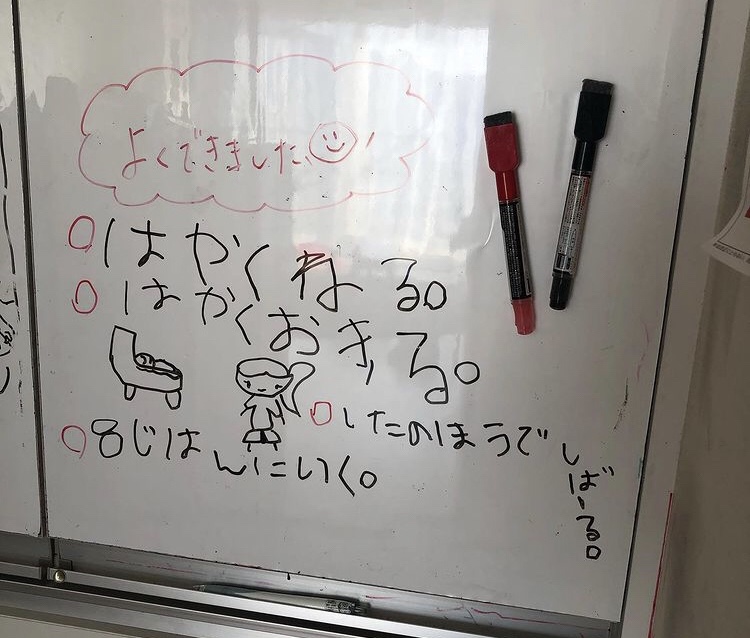 よくできました。
はかくねる。
はかくおきる。
したのほうでしばる。
8じはんにいく。